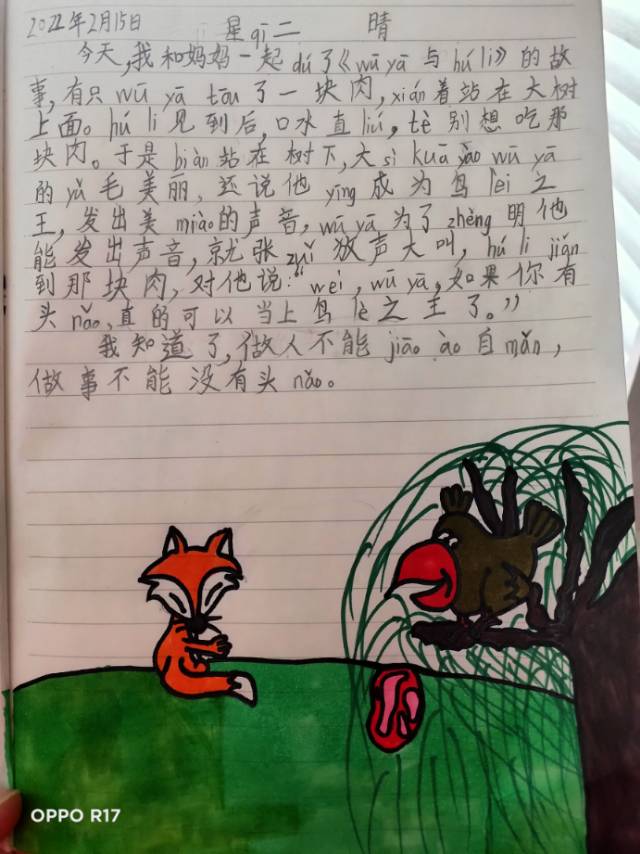 2022年2月15日 星qī二 晴
今天,我和妈妈一起dú了《wū yā 与 hú li》的故
事,有只 wū yā tōu 了一块肉,xián着站在大树
上面。hú li 见到后,口水直liú,tè 别想吃那
块肉。于是 biàn 站在树下,大 sì kuā yào wū yā
的 yǔ 毛美丽,还说他 yīng 成为鸟 lèi 之
王,发出美 miào的声音,wū yā 为了zhèng 明他
能发出声音,就张 zuǐ 放声大叫,hú li jiǎn
到那块肉,对他说:“wèi,wū yā,如果你有
头 nǎo,真的可以当上鸟 lè 之王了。”
我知道了,做人不能 jiāo ào 自 mǎn,
做事不能没有头 nǎo。
OPPO R17